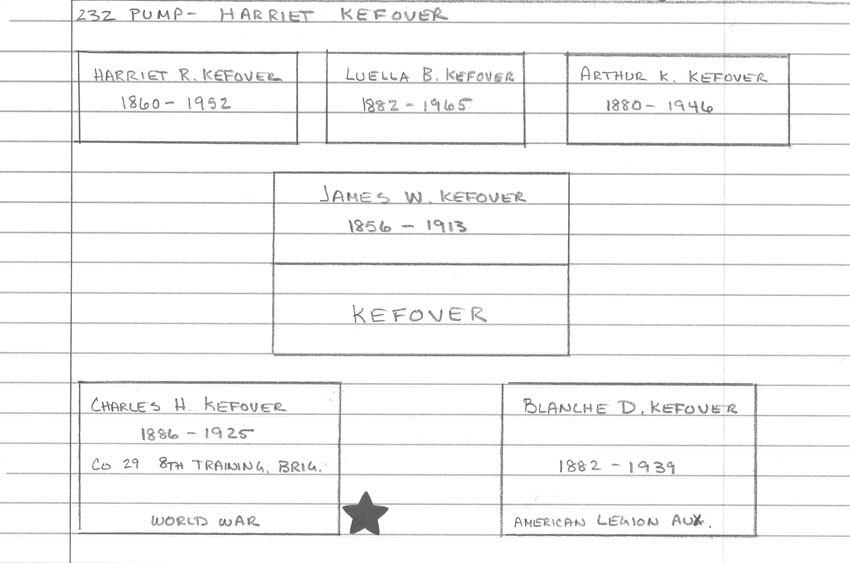 232 PUMP- HARRIET KEFOVER
HARRIET R. KEFOVER
1860 - 1952
LUELLA B. KEFOVER
1882 - 1965
ARTHUR K. KEFOVER
1880 - 1946
JAMES W. KEFOVER
1856 - 1913
KEFOVER
CHARLES H. KEFOVER
1886 - 1925
CO 29 8TH TRAINING. BRIG.
WORLD WAR
BLANCHE D. KEFOVER
1882 - 1939
AMERICAN LEGION AUX.